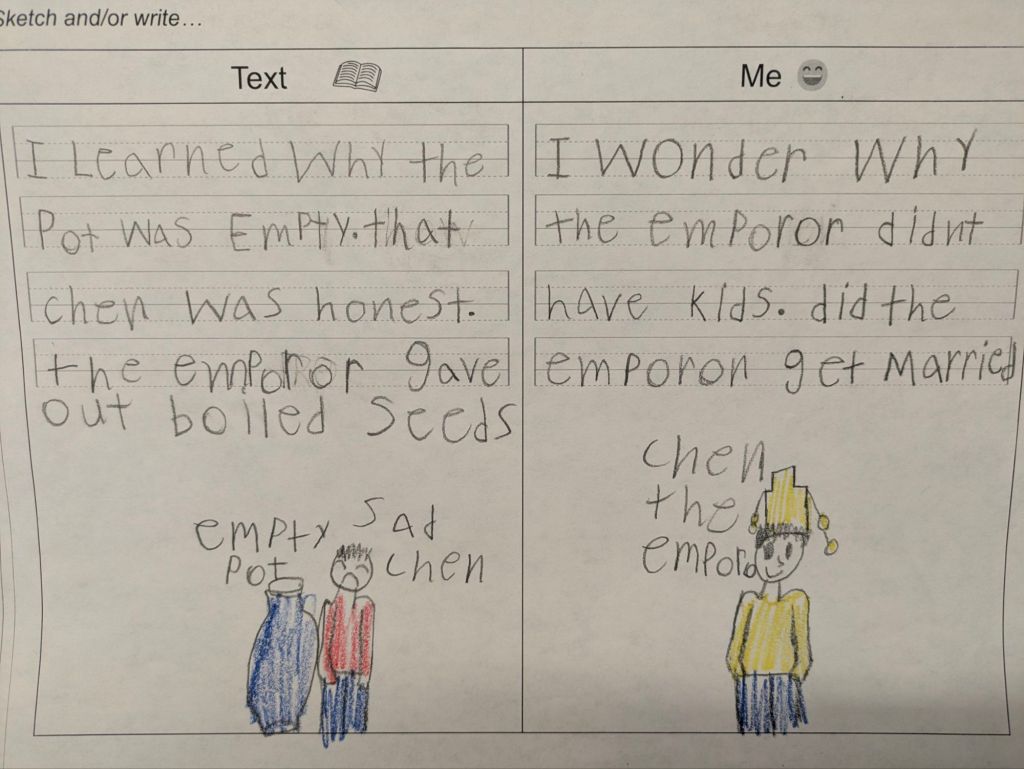 Sketch and/or write...
Text
I Learned WhY the
Pot was EmPtY. that
chen was honest.
the emporor gave
out boiled seeds
empty sad
pot chen
Me
I wonder WhY
the emporor didnt
have kids. did the
emporon get Married
chen
the
emporo